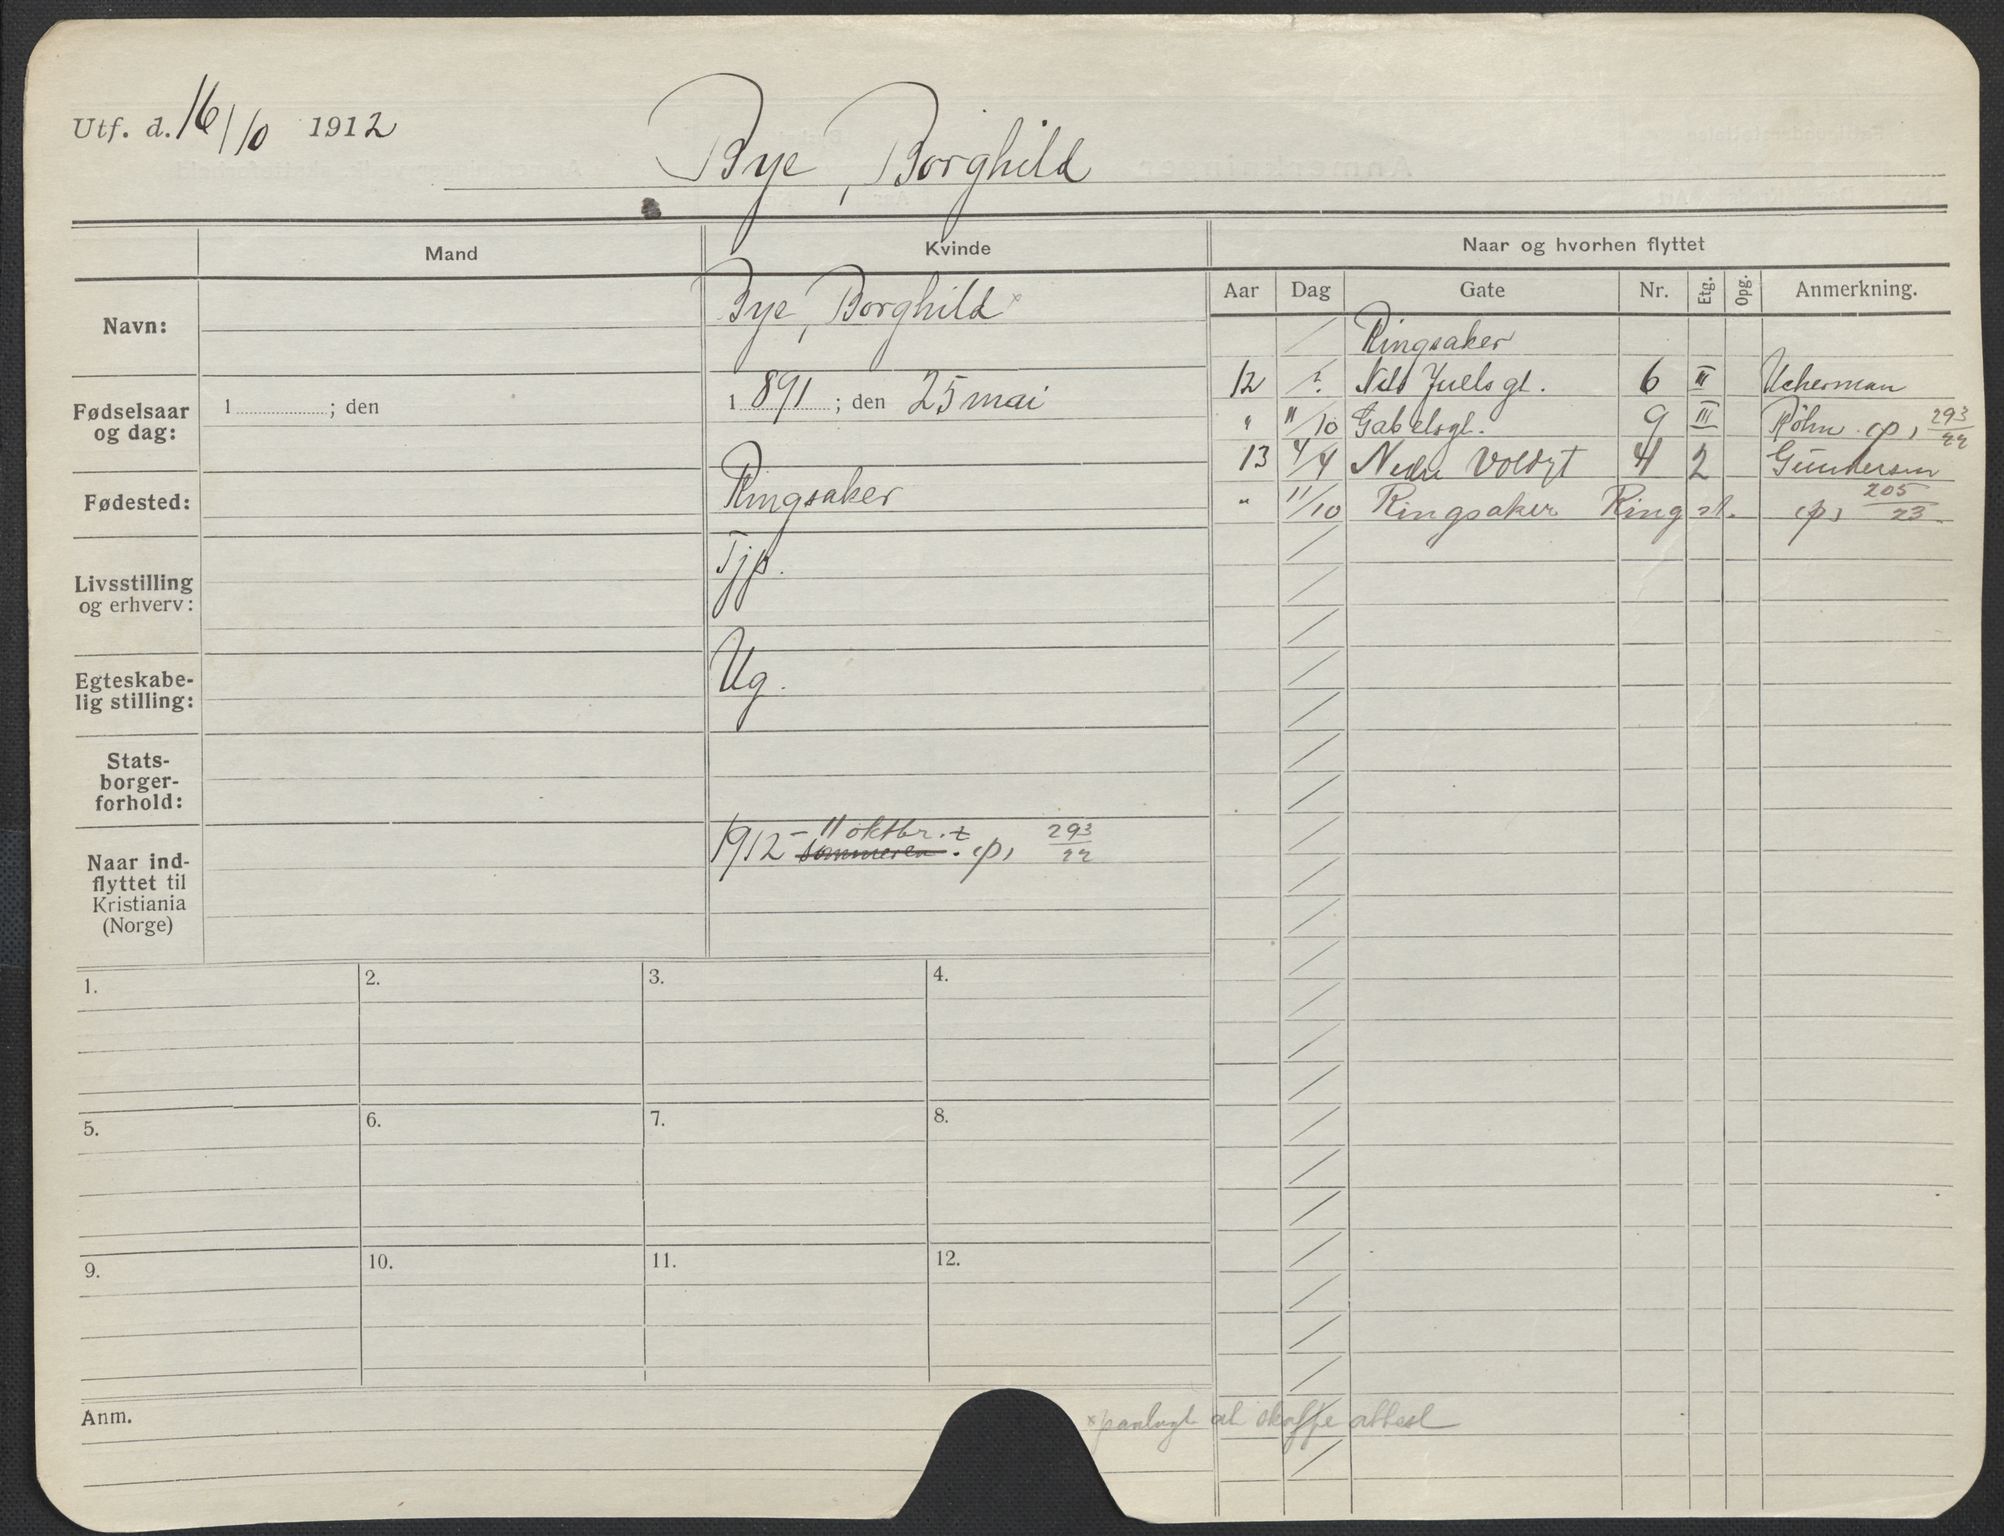 Utf. d. 16/10 1912
Bye, Borghild
Mand Kvinde Naar og hvorhen flyttet
Aar Dag Gate Nr. Etg. Opg. Anmerkning.
Navn: Bye, Borghild x
Fødselsaar og dag: 1 ; den 1 891 ; den 25 mai
Fødested: Ringsaker
Livsstilling og erhverv: Tjp.
Egteskabelig stilling: Ug.
Statsborgerforhold:
Naar indflyttet til Kristiania (Norge) 1912 – 11 oktbr. sommeren. 293/22
Ringsaker
12 ? Nils Juels gt. 6 III Ucherman
" 11/10 Gabelsgt. 9 III Røhn 293/22
13 4/4 Nedre Voldgt 4 2 Gundersen
" 11/10 Ringsaker Ring st. 205/23
1. 2. 3. 4.
5. 6. 7. 8.
9. 10. 11. 12.
Anm. x paalagt at skaffe attest